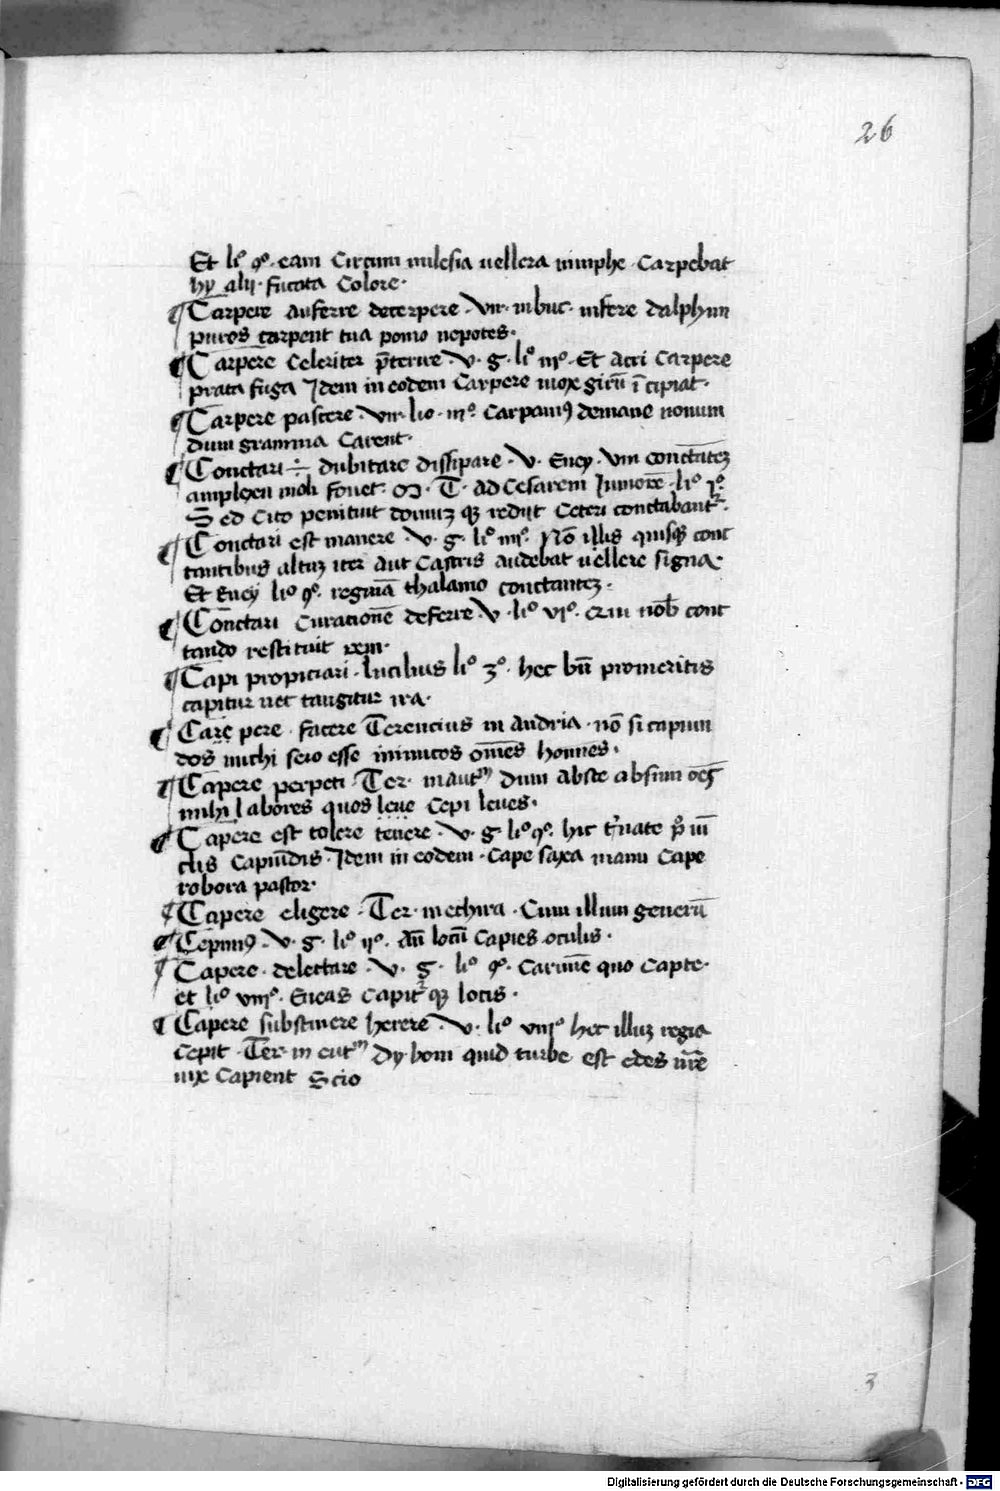 26
Et liº qº · eam Circum milesia uellera nimphe · Carpebat
hy alij · fucata Colore ·
¶ Carpere auferre decerpere · vir · in buc · insere dalphim
piros carpent tua pomo nepotes ·
¶ Carpere Celeriter p̄terire · v · g · liº iijº · Et acri Carpere
prata fuga Idem in eodem Carpere mox girū ī cipiat ·
¶ Carpere pascere · vir · lio · iijº · Carpamꝰ demane nouum
dum gramina Carent ·
¶ Conctari ÷ dubitare dissipare · v · Eney · viii conctātez
amplexu moli fouet · M · T · ad Cesarem Iuniorē · liº 1º ·
Sed Cito penituit domuz qȝ redijt Ceteri conctabantᷣ ·
¶ Conctari est manere · v · g · liº iiijº · Nō illis quisqȝ conc
tantibus altuz iter aut Castris audebat uellere signa ·
Et Eney liº qº · reginā thalamo conctantez ·
¶ Cōnctari Curationē deferre · v · liº vjº · qui nob̄ conc
tando restituit rem ·
¶ Capi propiciari · lucilius liº 3º · hec bn̄ promeritis
capitur nec tangitur ira ·
¶ Care pere · facere Terencius in andria · nō si capiun
dos michi scio esse inimicos om̄es homines ·
¶ Capere perpeti · Ter · in autͫ dum abste absum oēs
mihi labores quos leue Cepi leues ·
¶ Capere est tolere tenere · v · g · liº qº · hic
clis Capiūdis · Idem in eodem · Cape saxa manu Cape
robora pastor ·
¶ Capere eligere · Ter · in echira · Cum illum generū
¶ Cepimꝰ · v · g · liº ijº · aū locū Capies oculis ·
¶ Capere · delectare · v · g · liº qº · Carmīe quo Capte ·
et liº viiijº · Eneas Capitᷣ qȝ locis ·
¶ Capere substinere herere · v · liº viiijº hec illuz regia
Cepit · Ter · in eutͫ Dy boni quid turbe est edes nr̄e
uix Capient Scio
3
Digitalisierung gefördert durch die Deutsche Forschungsgemeinschaft - DFG